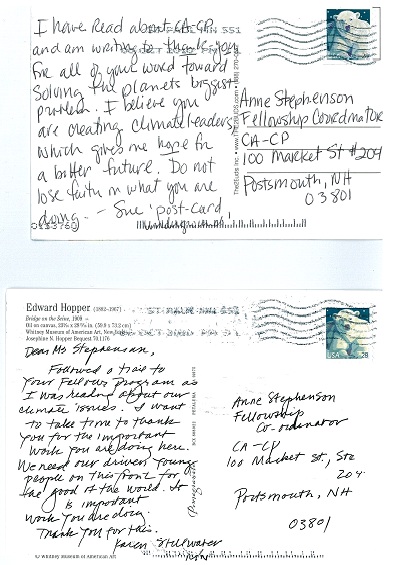 I have Read about CA-CP
and am writing to thank you
for all of your word toward
Solving the planets biggest
problem. I believe you
are creating climate leaders
which gives me hope for
a better future. Do not
lose faith in what you are
doing. - Sue 'post-card'
Anne Stephenson
Fellowship Coordinator
CA-CP
100 Market St #204
Portsmouth, NH
03801
Edward Hopper (1882-1967)
Bridge on the Seine, 1909
Whitney Museum of American Art, New York
Josephine N. Hopper Bequest 70.1176
Dear Ms Stephenson,
Followed a trail to
your Fellows Program as
I was reading about our
climate issues. I want
to take time to thank
you for the important
work you are doing here.
We need our driven young
people on this front for
the good of the world. It
is important
work you are doing.
Thank you for this.
Karen Stillwater
Pomegranate
USA 28
Anne Stephenson
Fellowship
Co-ordinator
CA-CP
100 Market St, Ste
204
Portsmouth, NH
03801
© Whitney Museum of American Art